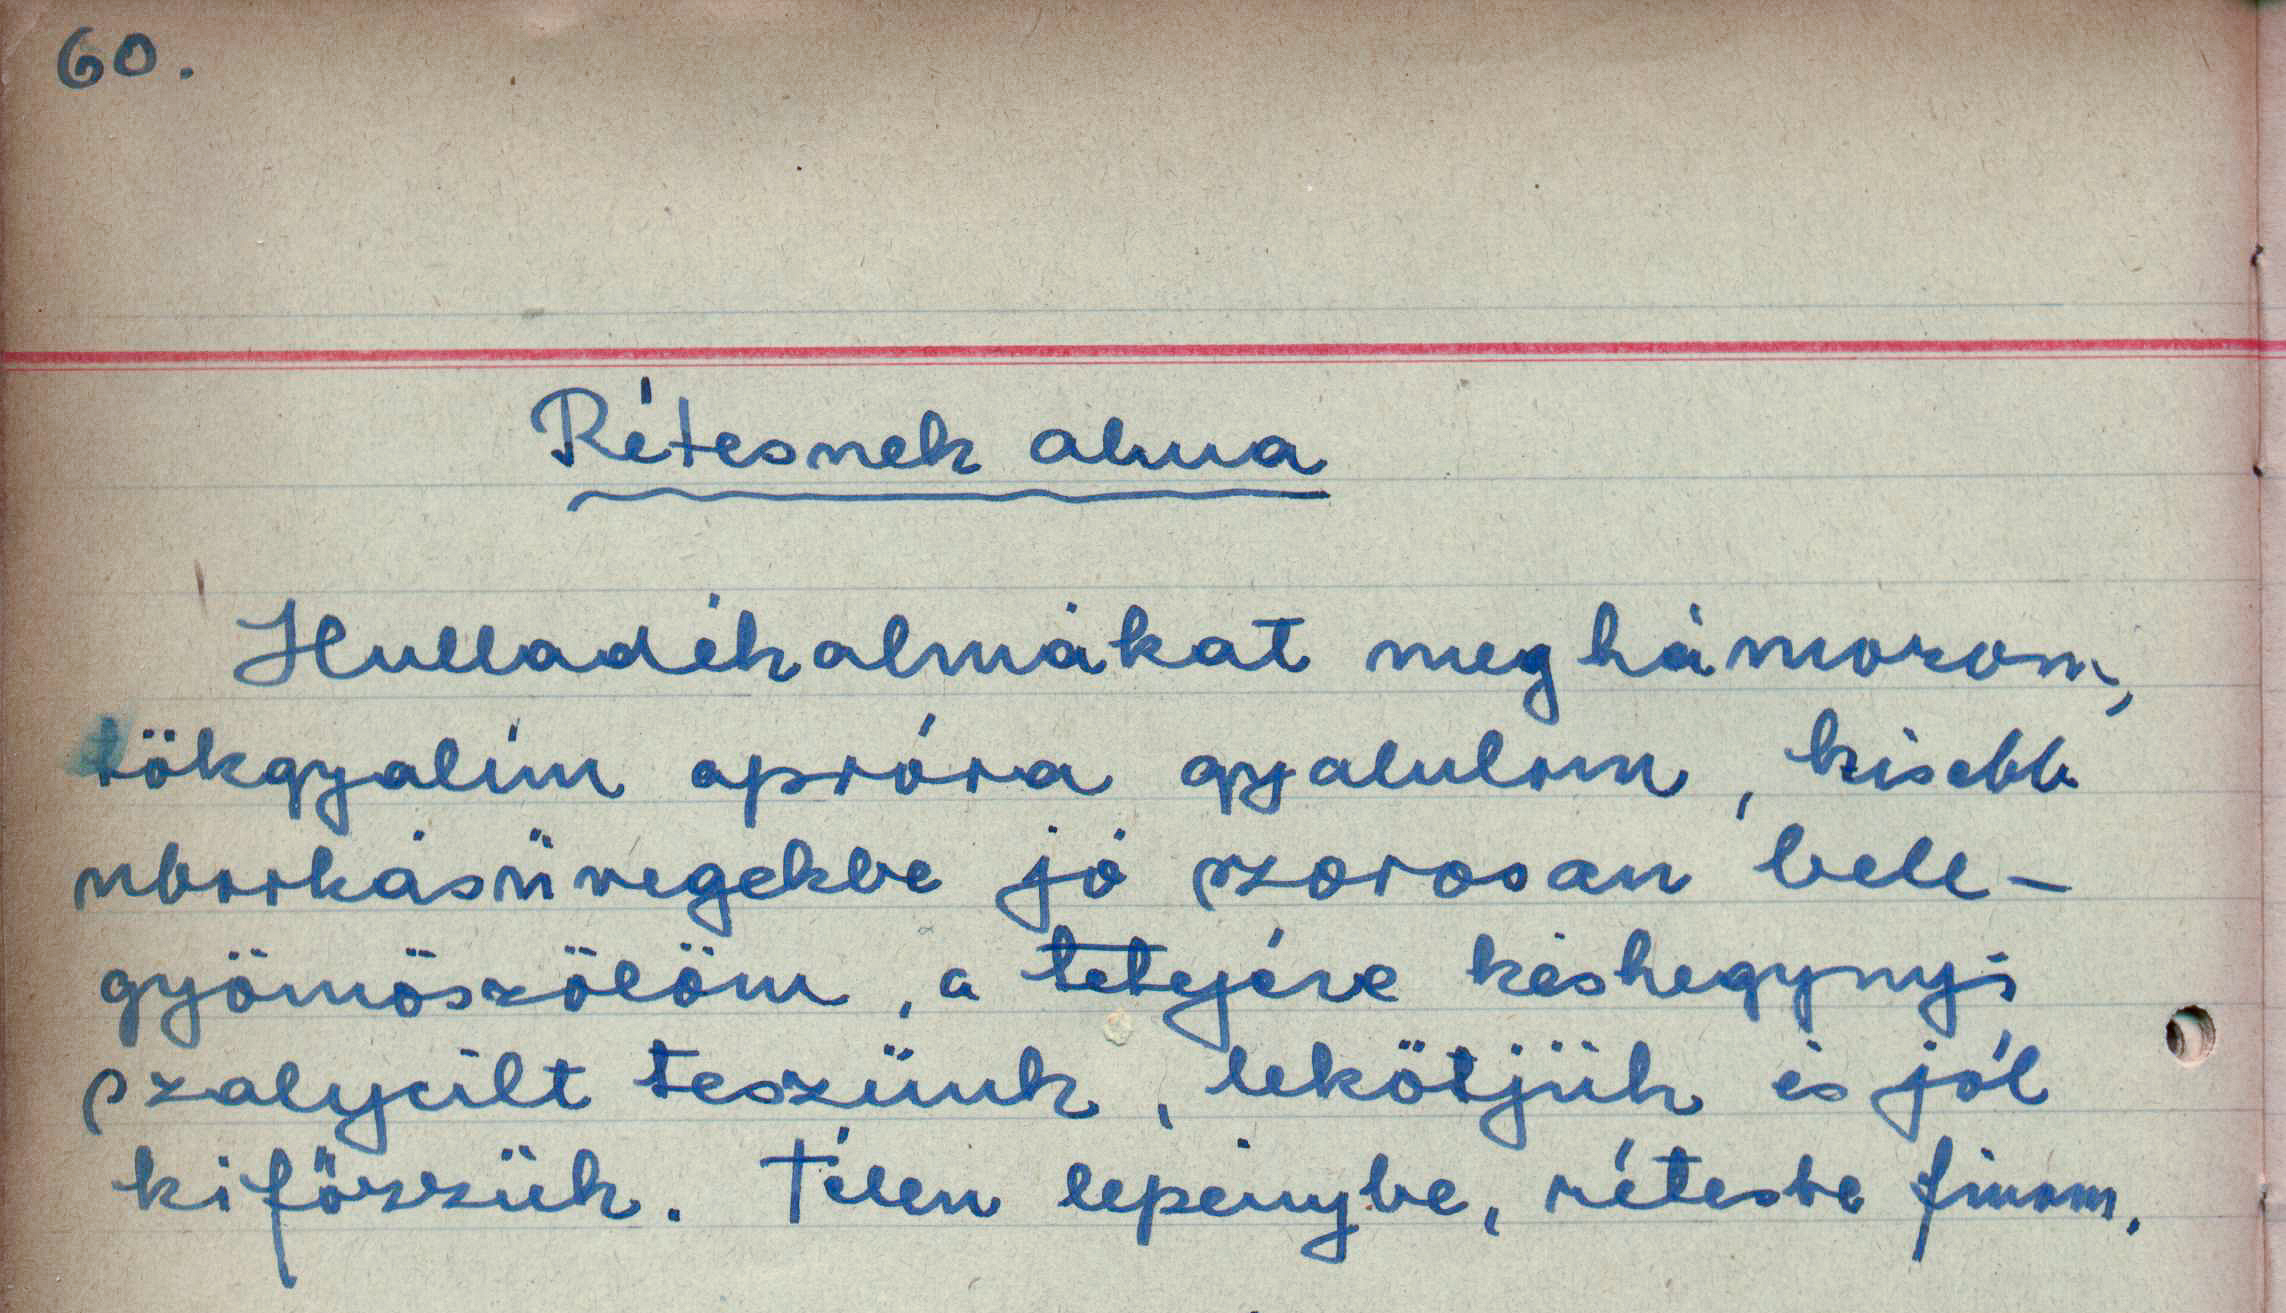 60.
Rétesnek alma
Hulladékalmákat meghámozom,
tökgyalún apróra gyalulom, kisebb
uborkásüvegekbe jó szorosan bele-
gyömöszölöm, a tetejére késhegynyi
szalycilt teszünk, lekötjük és jól
kifőzzük. Télen lepénybe, rétesbe finom.